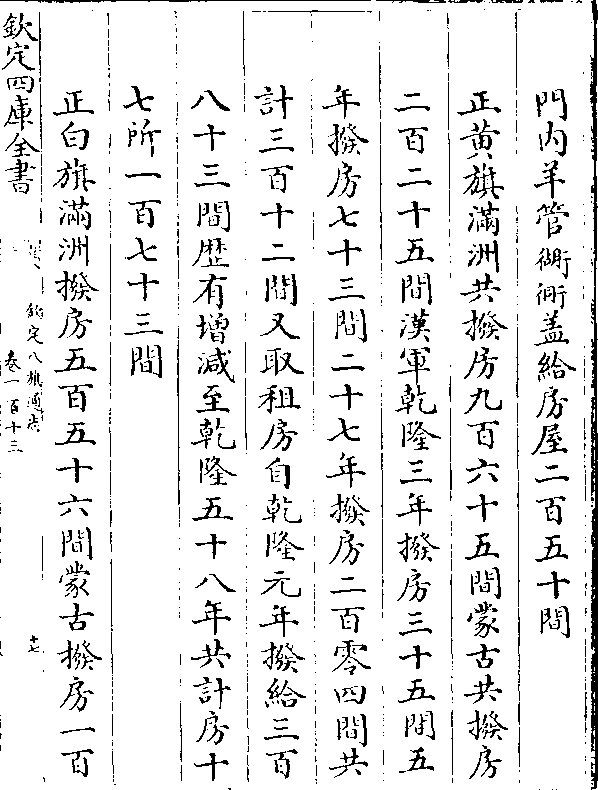 門内羊管衚衕盖給房屋二百五十間
正黄旗滿洲共撥房九百六十五間蒙古共撥房
二百二十五間漢軍乾隆三年撥房三十五間五
年撥房七十三間二十七年撥房二百零四間共
計三百十二間又取租房自乾隆元年撥給三百
八十三間歴有增減至乾隆五十八年共計房十
七所一百七十三間
正白旗滿洲撥房五百五十六間蒙古撥房一百
欽定四庫全書
欽定八旗通志
卷一百十三
十七